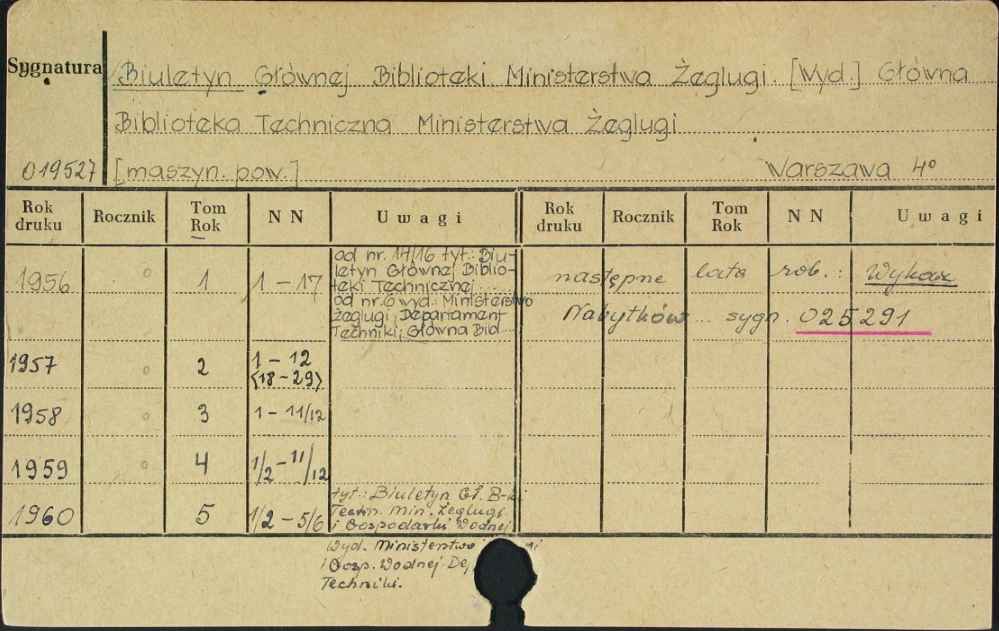 Sygnatura
Biuletyn Głównej Biblioteki Ministerstwa Żeglugi. [Wyd.] Główna
Biblioteka Techniczna Ministerstwa Żeglugi
019527 [maszyn. pow.] Warszawa 4°
Rok druku Rocznik Tom Rok NN Uwagi Rok druku Rocznik Tom Rok NN Uwagi
1956 1 1 – 17
od nr. 14/16 tyt.: Biu-
letyn Głównej Biblio-
teki Technicznej
od nr. 6 wyd. Ministerstwo
Żeglugi, Departament
Techniki, Główna Bibl.
następne lata rob.: Wykaz
Nabytków sygn. 025291
1957 2 1 – 12
<18 – 29>
1958 3 1 – 11/12
1959 4 1/2 – 11/12
1960 5 1/2 – 5/6
tyt.: Biuletyn Gł. B-ki
Techn. Min. Żeglugi
i Gospodarki Wodnej
Wyd. Ministerstwo
i Gosp. Wodnej
Techniki.